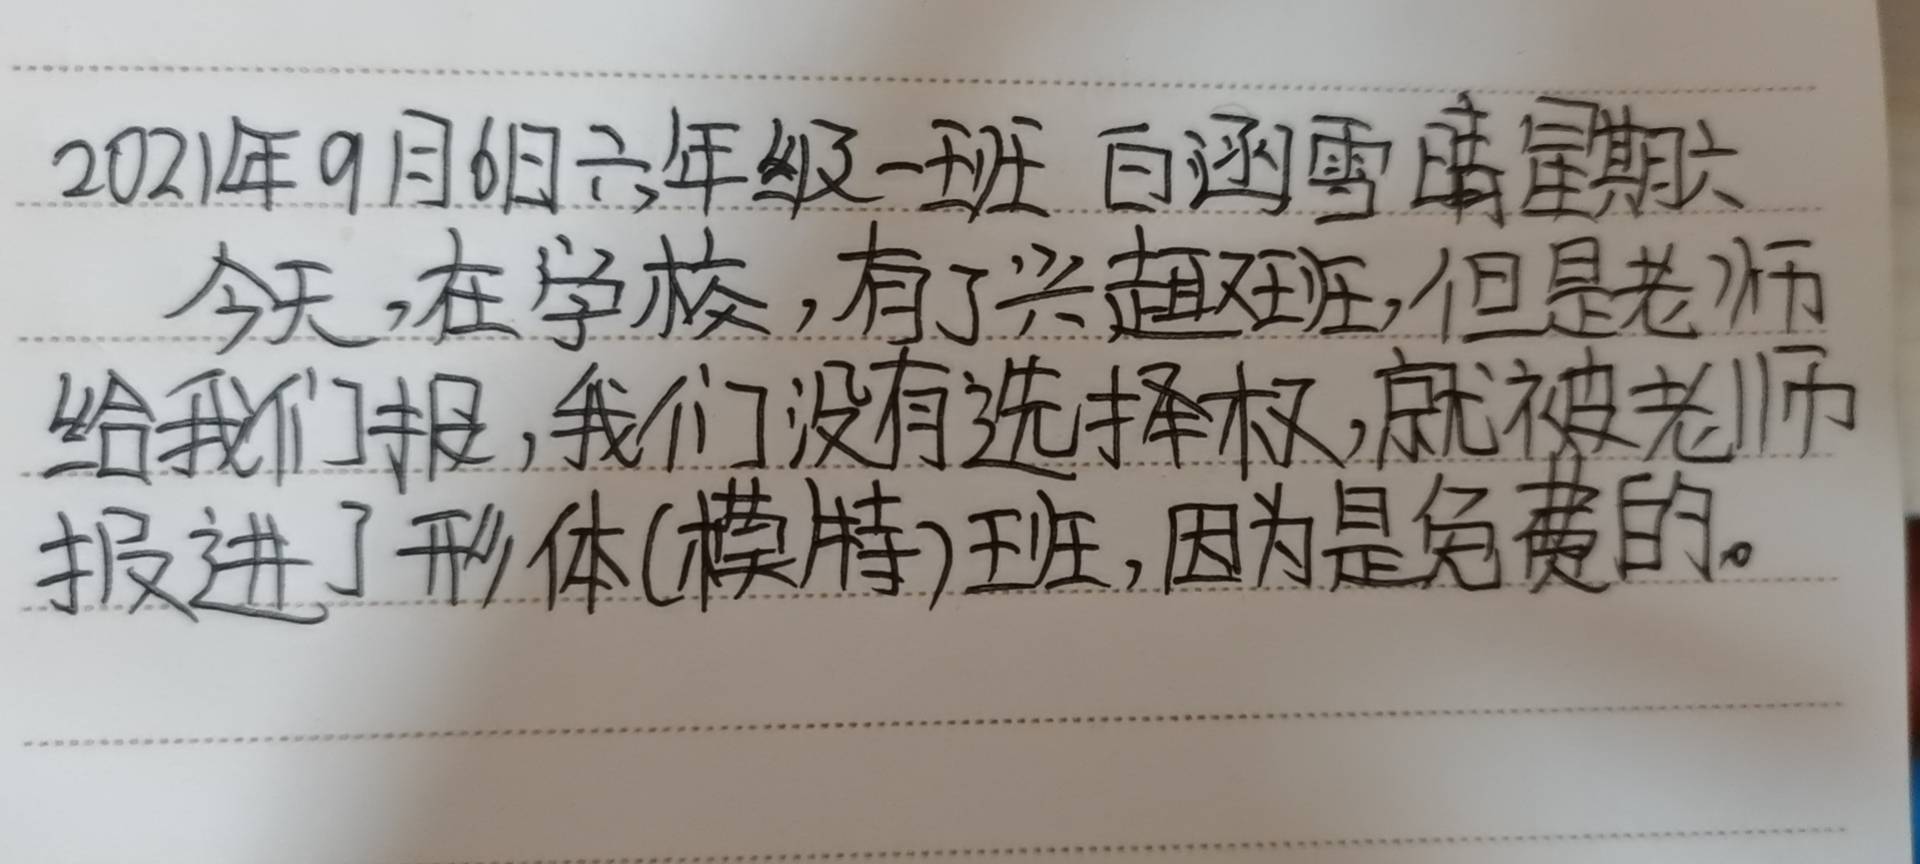 2021年9月6日六年级一班 白涵雪 晴 星期六
今天,在学校,有了兴趣班,但是老师
给我们报,我们没有选择权,就被老师
报进了形体(模特)班,因为是免费的。